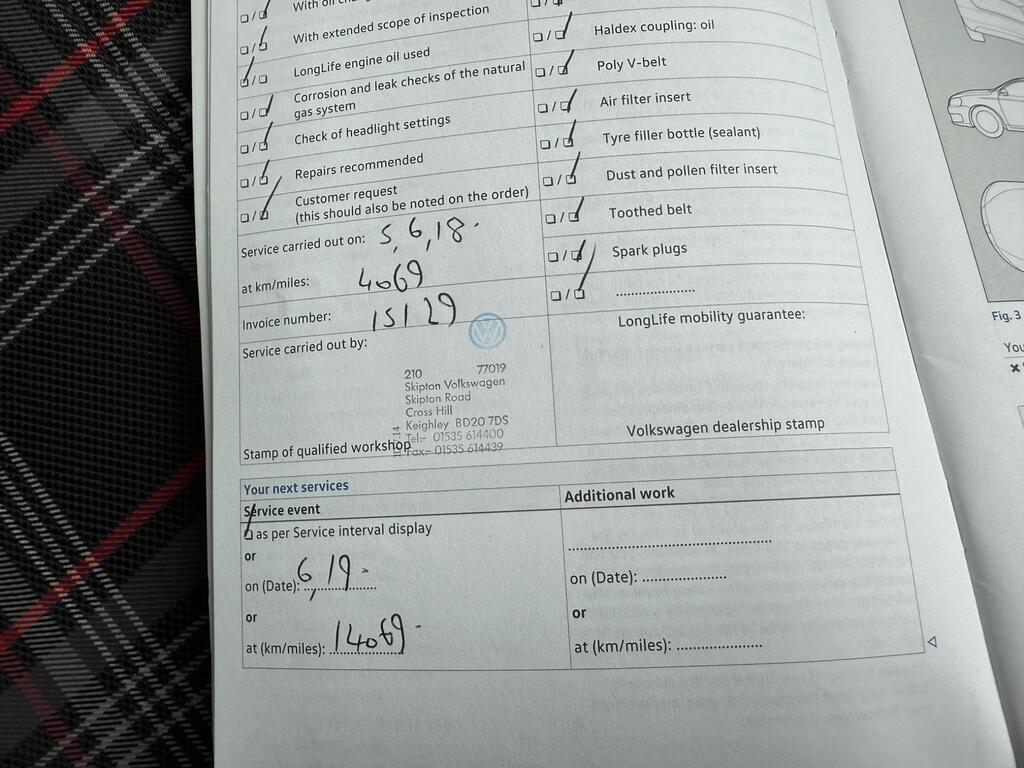 With oil
With extended scope of inspection
LongLife engine oil used
Corrosion and leak checks of the natural
gas system
Check of headlight settings
Repairs recommended
Customer request
(this should also be noted on the order)
Service carried out on: 5,6,18.
at km/miles: 4069
Invoice number: 15129
Service carried out by:
210 77019
Skipton Volkswagen
Skipton Road
Cross Hill
Keighley BD20 7DS
Tel:- 01535 614400
Fax:- 01535 614439
Stamp of qualified workshop
Haldex coupling: oil
Poly V-belt
Air filter insert
Tyre filler bottle (sealant)
Dust and pollen filter insert
Toothed belt
Spark plugs
....................
LongLife mobility guarantee:
Volkswagen dealership stamp
Your next services
Service event
as per Service interval display
or
on (Date): 6,19.
or
at (km/miles): 14069.
Additional work
....................
on (Date): ....................
or
at (km/miles): ....................
Fig. 3
You